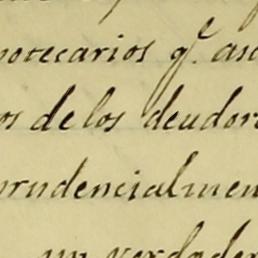 potecarios q.e as
os de los deudor
prudencialmen
un verdader